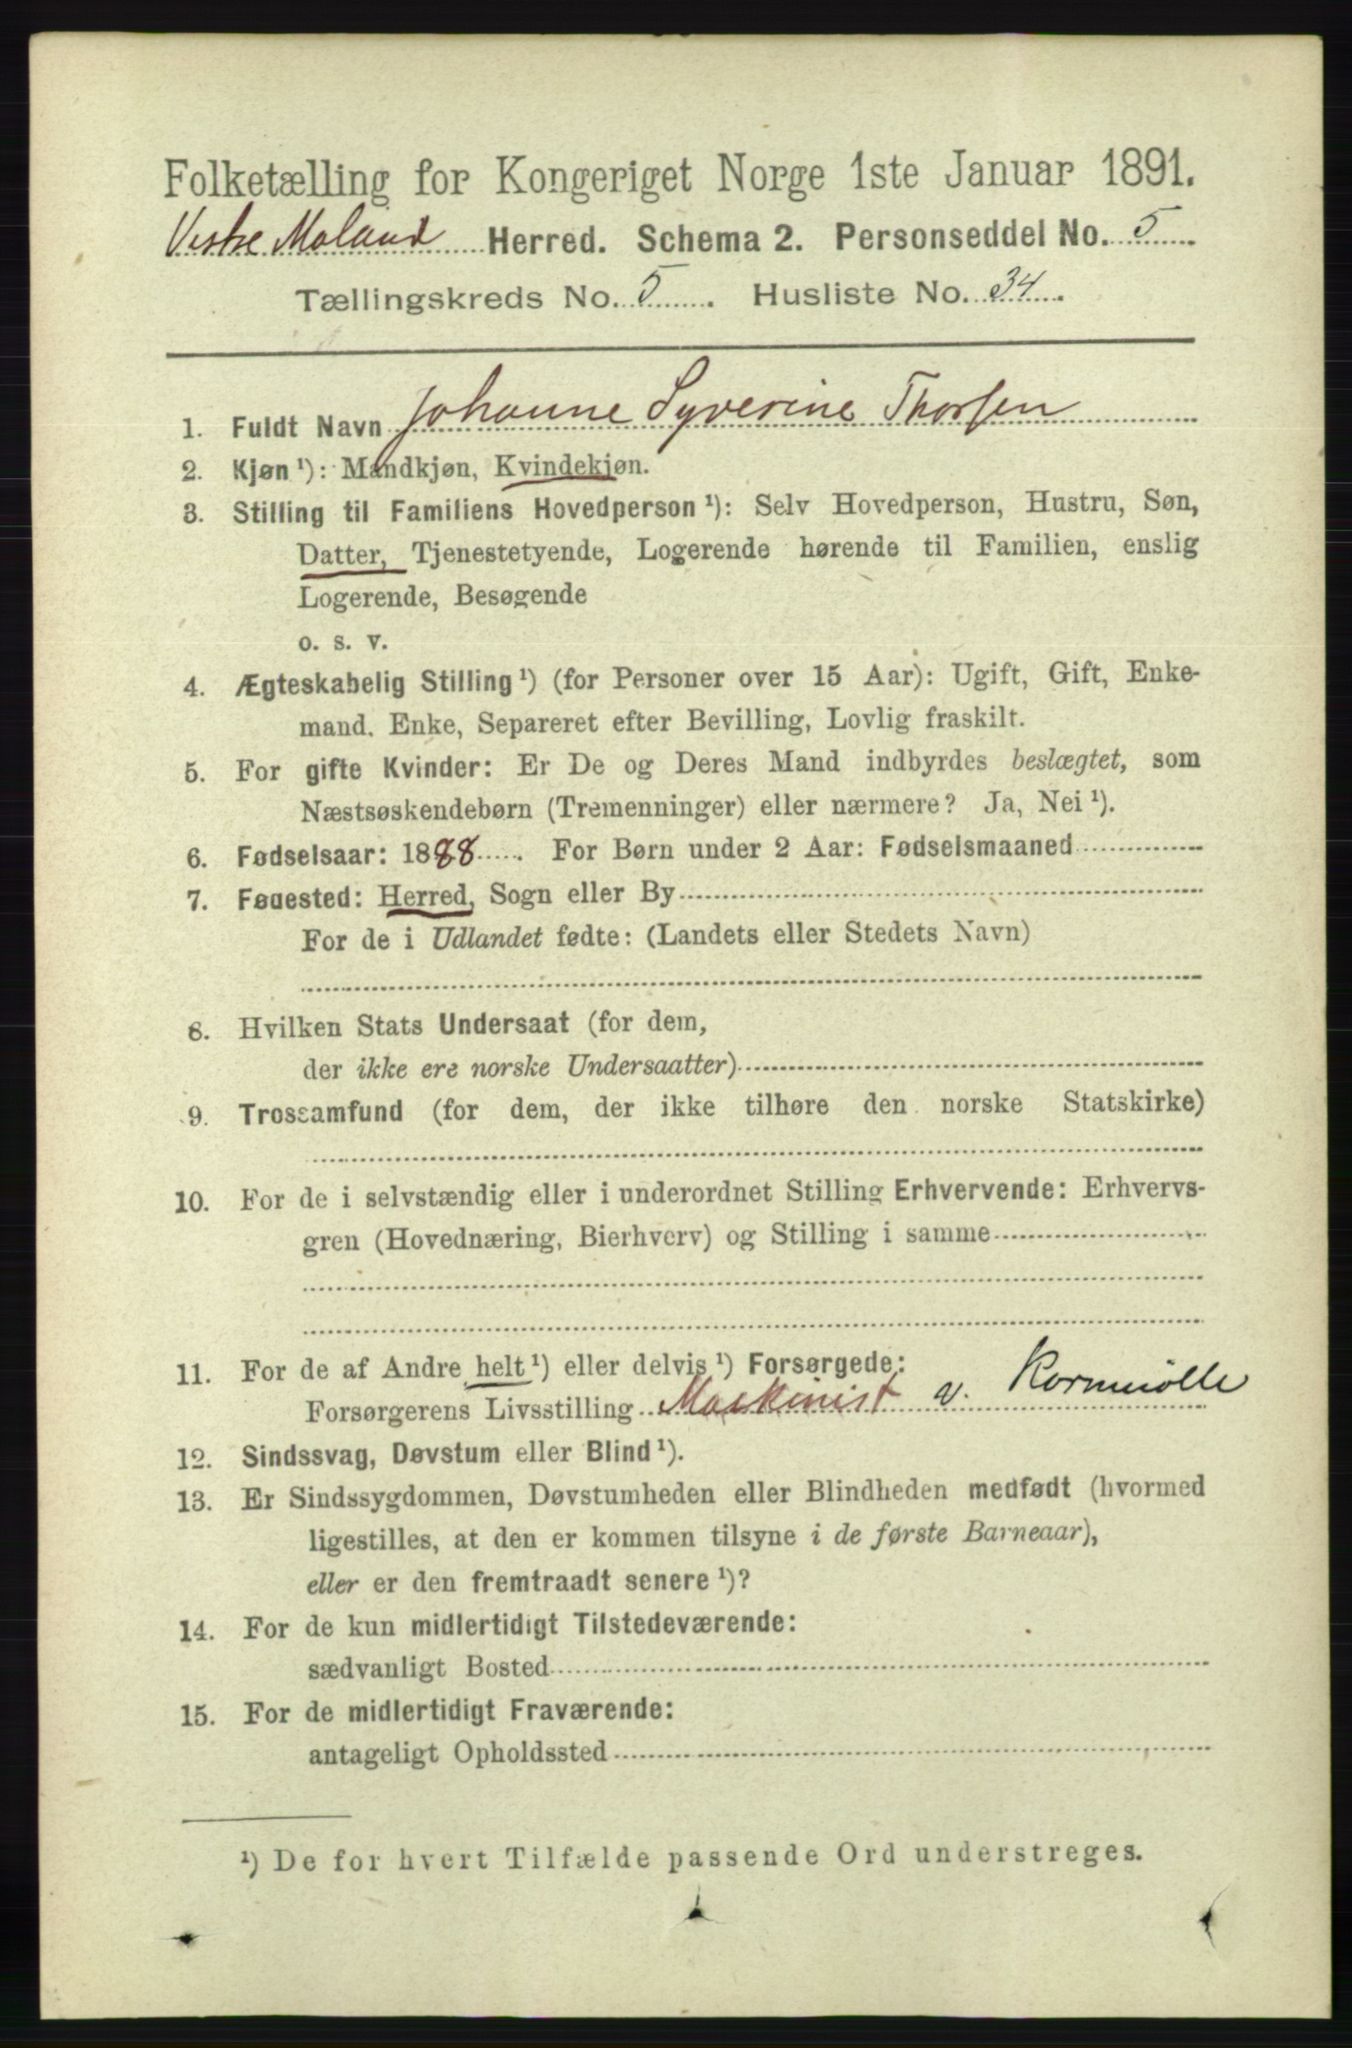 Folketælling for Kongeriget Norge 1ste Januar 1891.
Vestre Moland Herred. Schema 2. Personseddel No. 5
Tællingskreds No. 5. Husliste No. 34.
1. Fuldt Navn Johanne Syverine Thorsen
2. Kjøn ¹): Mandkjøn, Kvindekjøn.
3. Stilling til Familiens Hovedperson ¹): Selv Hovedperson, Hustru, Søn,
Datter, Tjenestetyende, Logerende hørende til Familien, enslig
Logerende, Besøgende
o. s. v.
4. Ægteskabelig Stilling ¹) (for Personer over 15 Aar): Ugift, Gift, Enke-
mand. Enke, Separeret efter Bevilling, Lovlig fraskilt.
5. For gifte Kvinder: Er De og Deres Mand indbyrdes beslægtet, som
Næstsøskendebørn (Tremenninger) eller nærmere? Ja, Nei ¹).
6. Fødselsaar: 1888. For Børn under 2 Aar: Fødselsmaaned
7. Føuested: Herred, Sogn eller By
For de i Udlandet fødte: (Landets eller Stedets Navn)
8. Hvilken Stats Undersaat (for dem,
der ikke ere norske Undersaatter)
9. Trossamfund (for dem, der ikke tilhøre den norske Statskirke)
10. For de i selvstændig eller i underordnet Stilling Erhvervende: Erhvervs-
gren (Hovednæring, Bierhverv) og Stilling i samme
11. For de af Andre helt ¹) eller delvis ¹) Forsørgede:
Forsørgerens Livsstilling Maskinist v. Kornmølle
12. Sindssvag, Døvstum eller Blind ¹).
13. Er Sindssygdommen, Døvstumheden eller Blindheden medfødt (hvormed
ligestilles, at den er kommen tilsyne i de første Barneaar),
eller er den fremtraadt senere ¹)?
14. For de kun midlertidigt Tilstedeværende:
sædvanligt Bosted
15. For de midlertidigt Fraværende:
antageligt Opholdssted
¹) De for hvert Tilfælde passende Ord understreges.